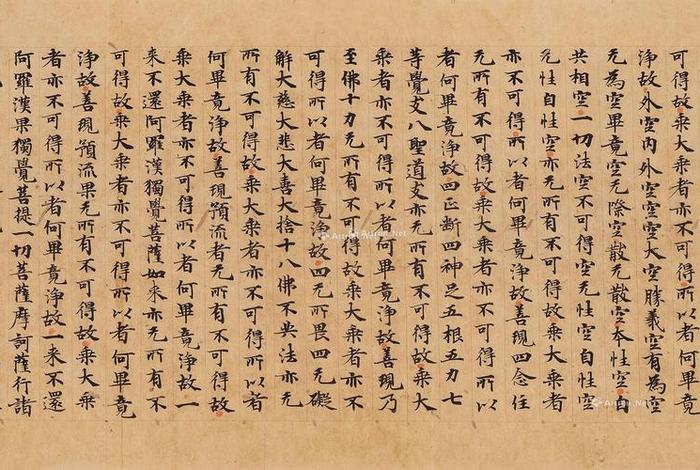 可得故乘大乘者亦不可得所以者何畢竟
淨故外空內外空空空大空勝義空有為空
无為空畢竟空无際空散无散空本性空自
共相空一切法空不可得空无性空自性空
无性自性空亦无所有不可得故乘大乘者
亦不可得所以者何畢竟淨故善現四念住
无所有不可得故乘大乘者亦不可得所以
者何畢竟淨故四正斷四神足五根五力七
等覺支八聖道支亦无所有不可得故乘大
乘者亦不可得所以者何畢竟淨故善現乃
至佛十力无所有不可得故乘大乘者亦不
可得所以者何畢竟淨故四无所畏四无礙
解大慈大悲大喜大捨十八佛不共法亦无
所有不可得故乘大乘者亦不可得所以者
何畢竟淨故善現預流者无所有不可得故
乘大乘者亦不可得所以者何畢竟淨故一
來不還阿羅漢獨覺菩薩如來亦无所有不
可得故乘大乘者亦不可得所以者何畢竟
淨故善現預流果无所有不可得故乘大乘
者亦不可得所以者何畢竟淨故一來不還
阿羅漢果獨覺菩提一切菩薩摩訶薩行諸
Artron.Net